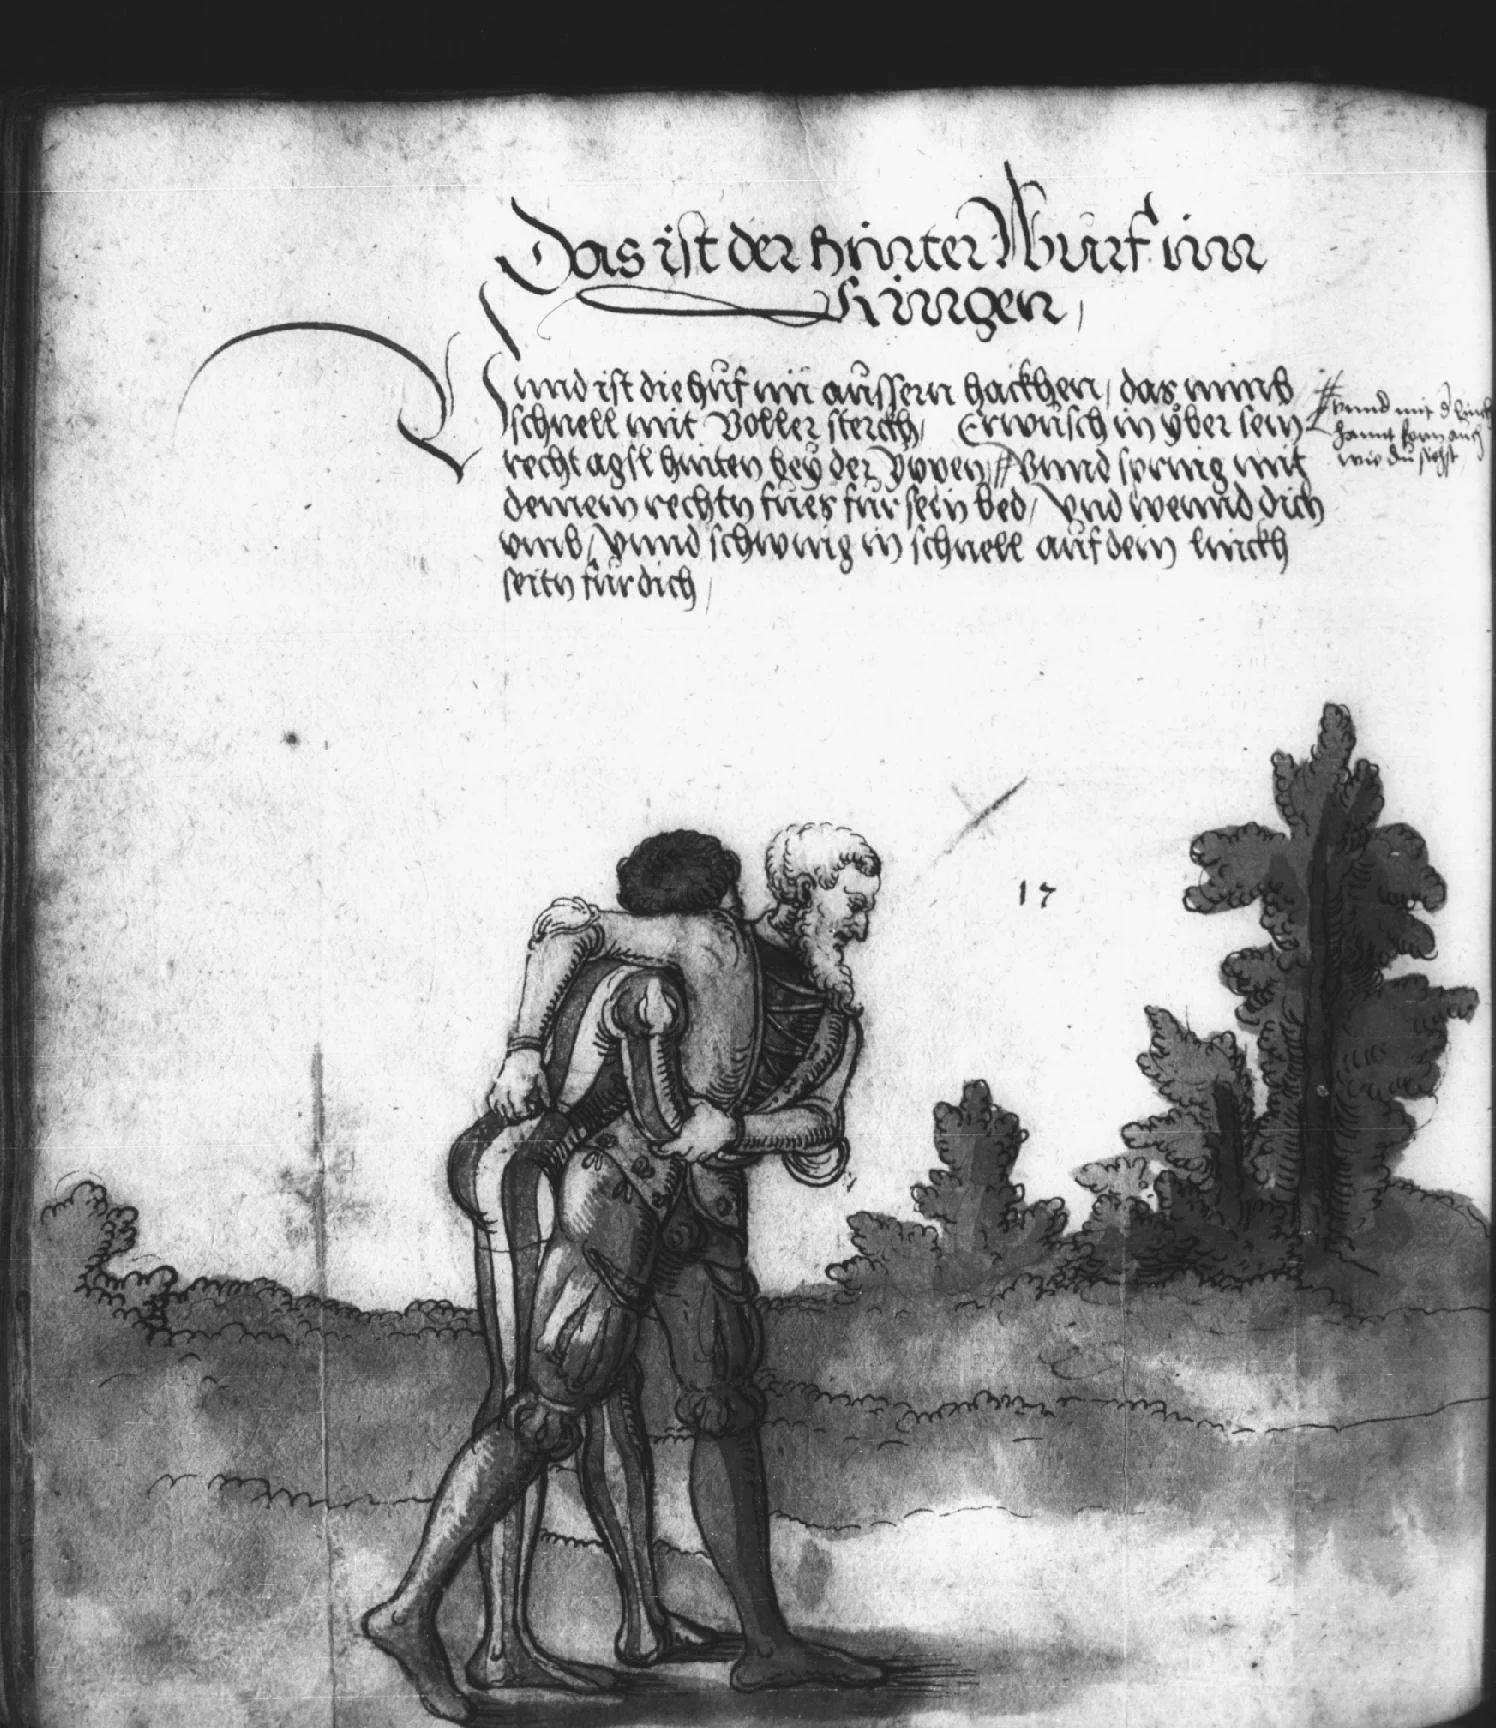 Das ist der hinter Wurf im
Ringen,
Unnd ist die huf im aussern hackhen, das nimb
schnell mit Voller sterckh, Erwüsch in yber sein
recht agsl hinten bey der Yppen, # Vnnd spring mit
deinem rechtn fues für sein bed, Vnd wennd dich
vmb, Vnnd schwing in schnell auf dein linckh
seitn für dich,
# vnnd mit d linckh
hannt forn auch
wie du sichst
17